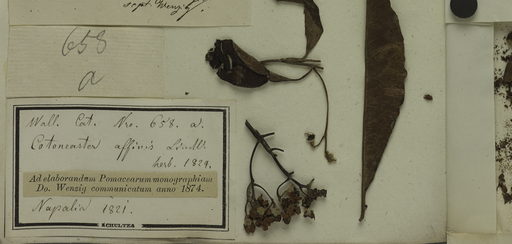 sept. Wenzig
658
a
Wall. Cat. Nro. 658. a.
Cotoneaster affinis Lindl.
herb. 1824.
Ad elaborandam Pomacearum monographiam
Do. Wenzig communicatum anno 1874.
Napalia 1821.
SCHULTZA